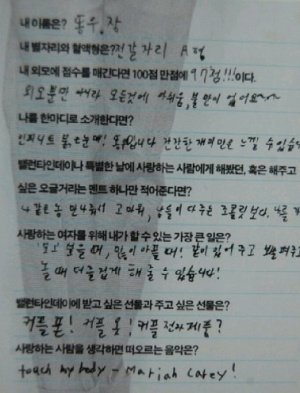 내 이름은? 동우, 장
내 별자리와 혈액형은? 전갈자리 A형
내 외모에 점수를 매긴다면 100점 만점에 97점!!!이다.
외모뿐만 아니라 모든것에 아쉬움, 불만이 없어요~~
나를 한마디로 소개한다면?
인피니트 동우입니다 간간한 재미만은 느낄 수 있습
밸런타인데이나 특별한 날에 사랑하는 사람에게 해봤던, 혹은 해주고
싶은 오글거리는 멘트 하나만 적어준다면?
나같은 놈 만나줘서 고마워, 남들이 다주는 초콜릿보다, 나를
사랑하는 여자를 위해 내가 할 수 있는 가장 큰 일은?
때, 많이 아플 때! 같이 있어 주고
놀 때 더 즐겁게 해 줄 수 있습니다!
밸런타인데이에 받고 싶은 선물과 주고 싶은 선물은?
커플폰! 커플옷! 커플전자제품?
사랑하는 사람을 생각하면 떠오르는 음악은?
touch my body - Mariah Carey!